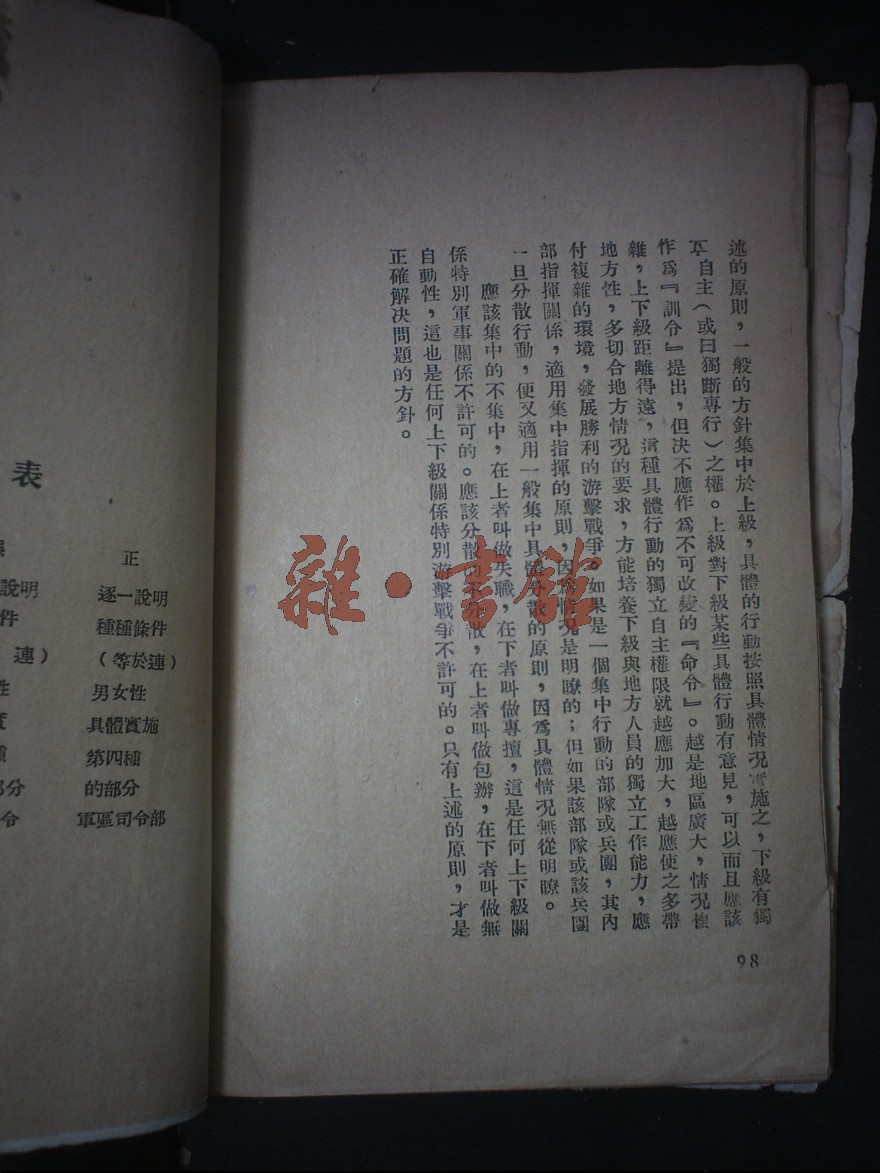 述的原則，一般的方針集中於上級，具體的行動按照具體情況實施之，下級有獨
立自主（或曰獨斷專行）之權。上級對下級某些具體行動有意見，可以而且應該
作爲『訓令』提出，但决不應作爲不可改變的『命令』。越是地區廣大，情況複
雜，上下級距離得遠，這種具體行動的獨立自主權限就越應加大，越應使之多帶
地方性，多切合地方情況的要求，方能培養下級與地方人員的獨立工作能力，應
付複雜的環境，發展勝利的游擊戰爭。如果是一個集中行動的部隊或兵團，其內
部指揮關係，適用集中指揮的原則，因爲情況是明瞭的；但如果該部隊或該兵團
一旦分散行動，便又適用一般集中具體分散的原則，因爲具體情況無從明瞭。
應該集中的不集中，在上者叫做失職，在下者叫做專擅，這是任何上下級關
係特別軍事關係不許可的。應該分散的不分散，在上者叫做包辦，在下者叫做無
自動性，這也是任何上下級關係特別游擊戰爭不許可的。只有上述的原則，才是
正確解决問題的方針。
98
表
正
說明 逐一說明
件 種種條件
連） （等於連）
性 男女性
具體實施
種 第四種
部分 的部分
令 軍區司令部
雜·書館